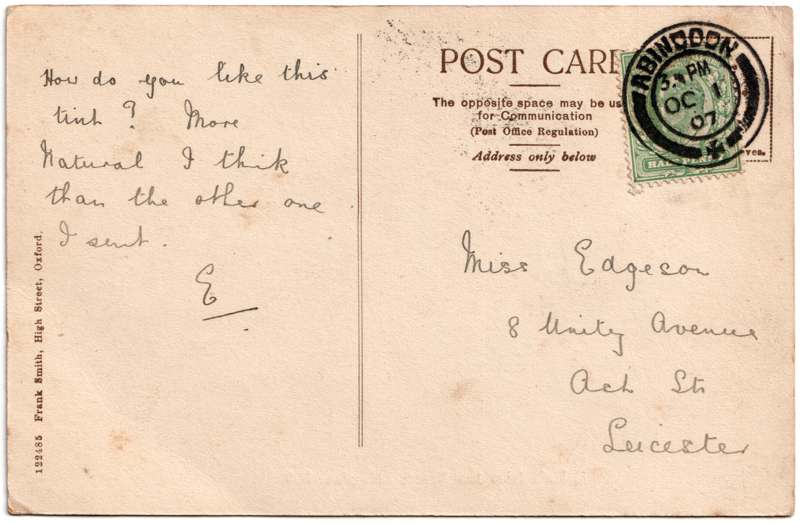 How do you like this
tint? More
Natural I think
than the other one
I sent.
E
122485 Frank Smith, High Street, Oxford.
POST CARD
The opposite space may be us
for Communication
(Post Office Regulation)
Address only below
ABINGDON
3. PM
OC 1
07
HALF
Miss Edgeson
8 Unity Avenue
St
Leicester